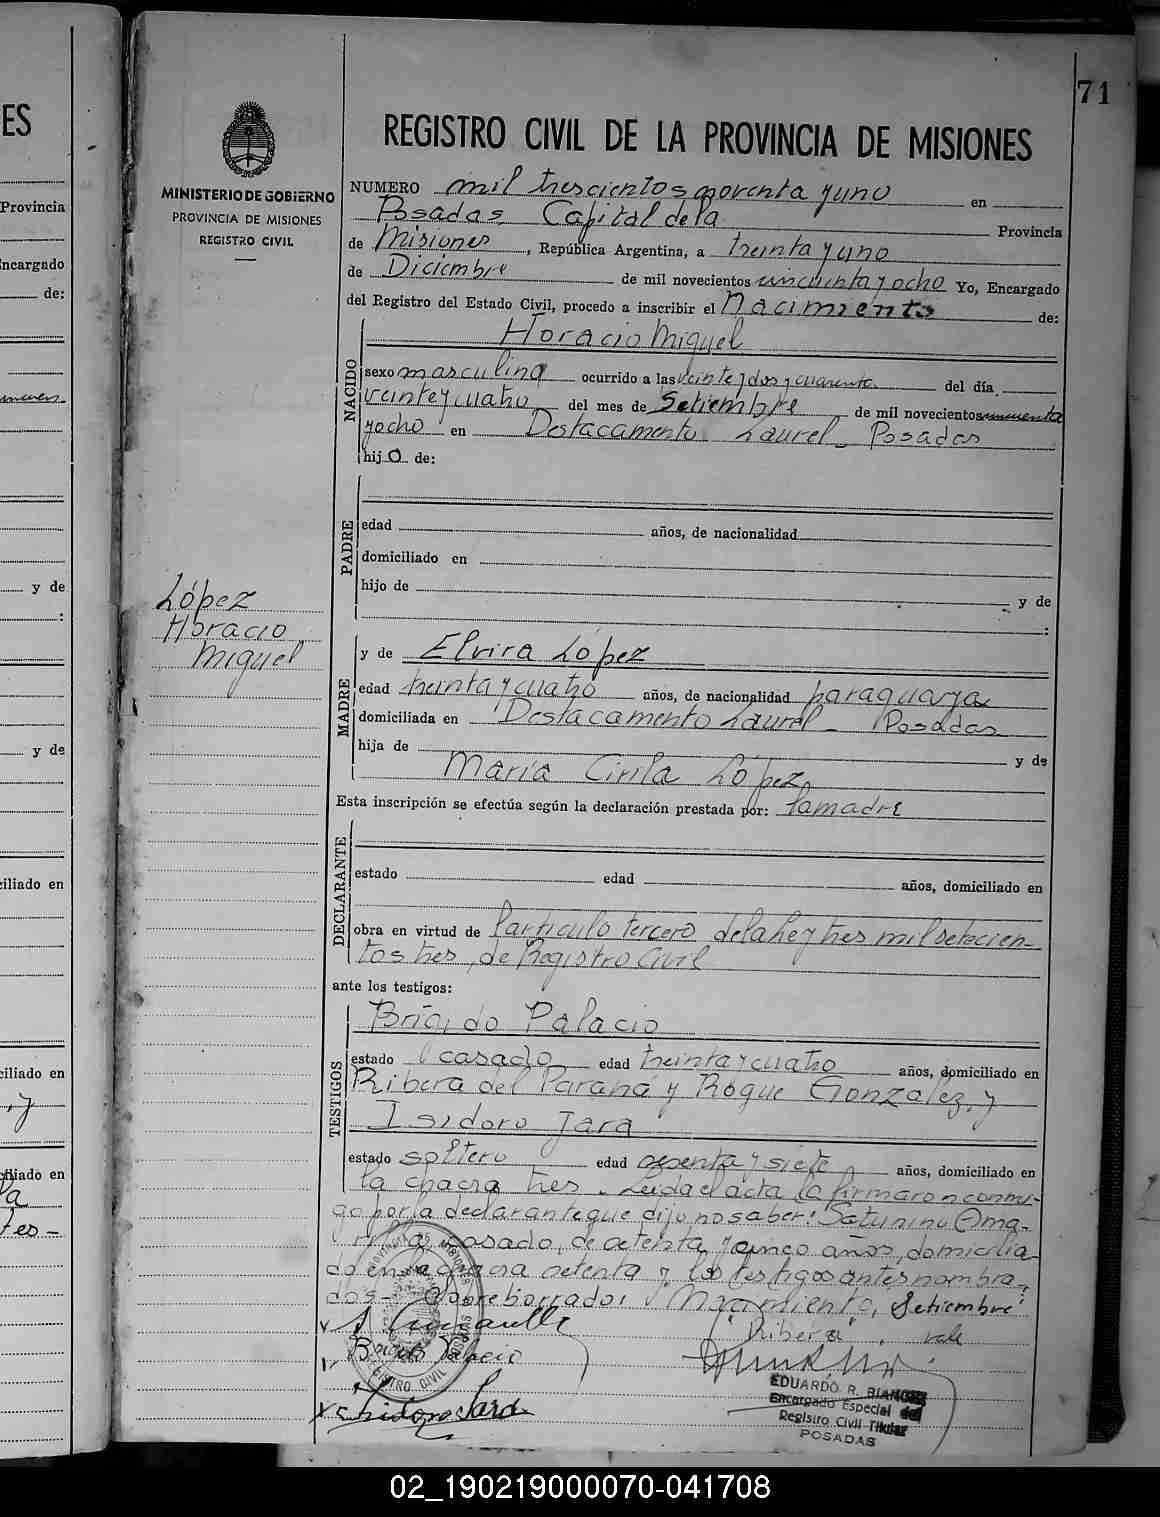 71
REGISTRO CIVIL DE LA PROVINCIA DE MISIONES
MINISTERIO DE GOBIERNO
PROVINCIA DE MISIONES
REGISTRO CIVIL
NUMERO mil trescientos noventa y uno en
Posadas, Capital de la Provincia
de Misiones, República Argentina, a treinta y uno
de Diciembre de mil novecientos cincuenta y ocho Yo, Encargado
del Registro del Estado Civil, procedo a inscribir el Nacimiento de:
NACIDO
Horacio Miguel
sexo masculino ocurrido a las veinte y dos y cuarenta del día
veinte y cuatro del mes de Setiembre de mil novecientos cincuenta
y ocho en Destacamento Laurel - Posadas
hijo de:
PADRE
edad años, de nacionalidad
domiciliado en
hijo de y de
:
López
Horacio
Miguel
MADRE
y de Elvira López
edad treinta y cuatro años, de nacionalidad paraguaya
domiciliada en Destacamento Laurel - Posadas
hija de y de
María Cirila López
Esta inscripción se efectúa según la declaración prestada por: la madre
DECLARANTE
estado edad años, domiciliado en
obra en virtud de l'articulo tercero de la ley tres mil setecien-
tos tres, de Registro Civil
ante los testigos:
TESTIGOS
Brigido Palacio
estado casado edad treinta y cuatro años, domiciliado en
Ribera del Paraná y Roque González, y
Isidoro Jara
estado soltero edad sesenta y siete años, domiciliado en
la chacra tres. Leida el acta la firmaron conmi-
go por la declarante que dijo no saber: Saturnino
casado, de setenta y cinco años, domicilia
do en chacra setenta y los testigos antes nombra
dos - Sobreborrado: Nacimiento, Setiembre
"Ribera". vale
Brigido Palacio
Isidoro Jara
EDUARDO R.
Encargado Especial del
Registro Civil Titular
POSADAS
ES
Provincia
Encargado
de:
y de
:
y de
ciliado en
ciliado en
y
ciliado en
tes-
02_190219000070-041708